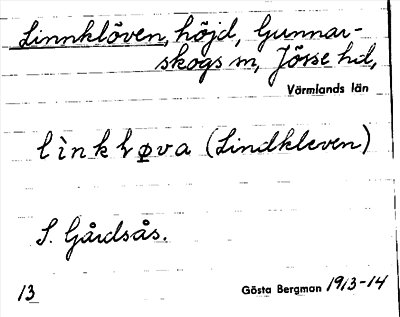 Linnklöven, höjd, Gunnar-
skogs sn, Jösse hd,
Värmlands län
(Lindkleven)
S. Gårdsås.
13 Gösta Bergman 1913-14